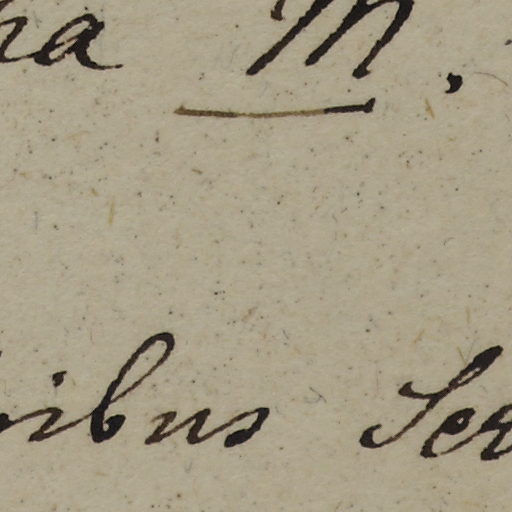 ha M.
ibus Ser